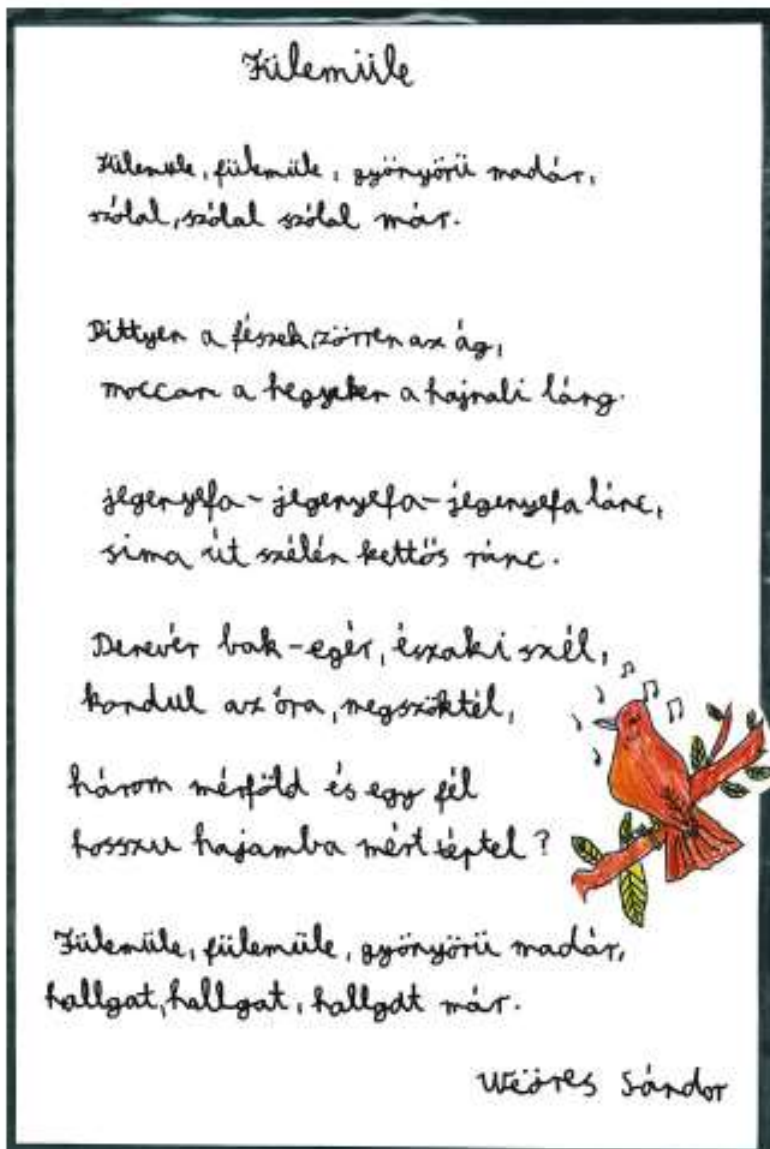 Fülemüle
Fülemüle, fülemüle, gyönyörü madár,
szólal, szólal szólal már.
Pittyen a fészek, zörren az ág,
moccan a hegyeken a hajnali láng.
jegenyefa-jegenyefa-jegenyefa lánc,
sima út szélén kettős ránc.
Denevér bak-egér, északi szél,
kondul az óra, megszöktél,
három mérföld és egy fél
hosszu hajamba mért téptel?
Fülemüle, fülemüle, gyönyörü madár,
hallgat, hallgat, hallgat már.
Weöres Sándor